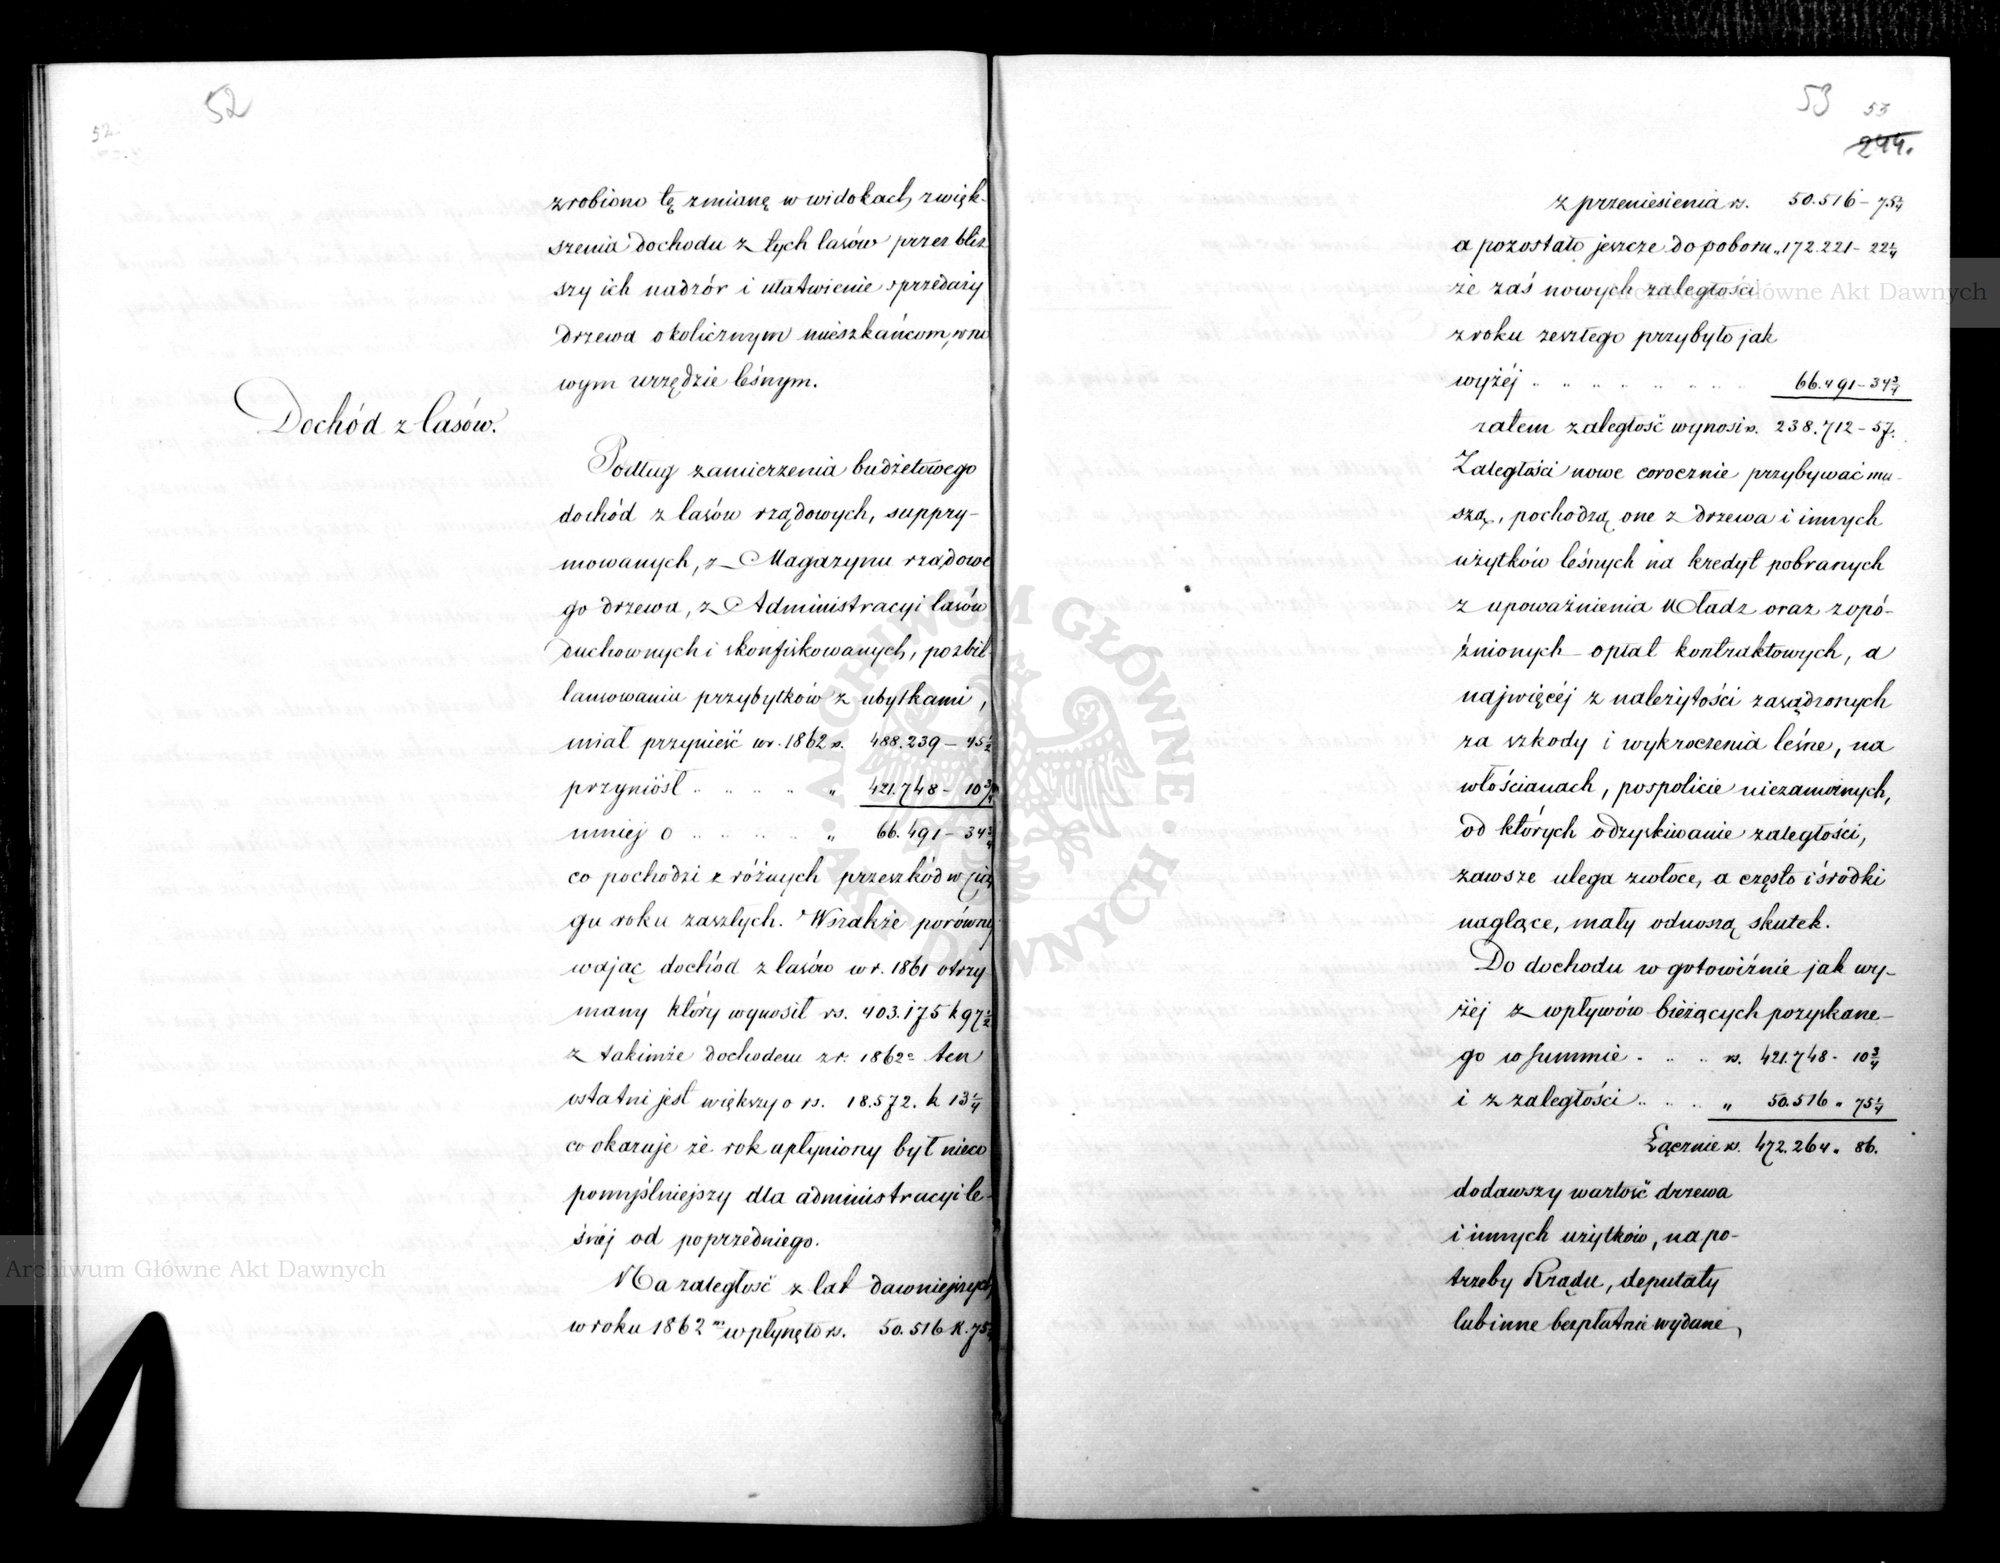 52
52.
zrobiono tę zmianę w widokach zwięk-
szenia dochodu z tych lasów przez bliż
szy ich nadzór i ułatwienie sprzedaży
drzewa okolicznym mieszkańcom, w no
wym urzędzie leśnym.
Dochód z lasów.
Podług zamierzenia budżetowego
dochód z lasów rządowych, suppry-
mowanych, z Magazynu rządowe
go drzewa, z Administracyi lasów
duchownych i skonfiskowanych, po zbil-
lansowaniu przybytków z ubytkami,
miał przynieść w r. 1862 rs. 488.239 — 45½
przyniósł .. .. .. .. „ 421.748 — 10¾
mniej o .. .. .. .. „ 66.491 — 34¾
co pochodzi z różnych przeszkód w cią
gu roku zaszłych. Wszakże porówny
wając dochód z lasów w r. 1861 otrzy
many który wynosił rs. 403.175 k 97½
z takimże dochodem z r. 1862º ten
ostatni jest większy o rs. 18.572. k 13¼
co okazuje że rok upłyniony był nieco
pomyślniejszy dla administracyi le-
śnéj od poprzedniego.
Na zaległość z lat dawniejszych
w roku 1862 m wpłynęło rs. 50.516 k. 75¼
53
53
244.
z przeniesienia rs. 50.516 — 75¼
a pozostało jeszcze do poboru „ 172.221 — 22¼
że zaś nowych zaległości
z roku zeszłego przybyło jak
wyżéj .. .. .. .. .. .. .. 66.491 — 34¾
zatem zaległość wynosi rs. 238.712 — 57.
Zaległości nowe corocznie przybywać mu-
szą, pochodzą one z drzewa i innych
użytków leśnych na kredyt pobranych
z upoważnienia Władz oraz z opó-
źnionych opłat kontraktowych, a
najwięcéj z należytości zasądzonych
za szkody i wykroczenia leśne, na
włościanach, pospolicie niezamożnych,
od których odzyskiwanie zaległości,
zawsze ulega zwłoce, a często i środki
naglące, mały odnoszą skutek.
Do dochodu w gotowiźnie jak wy-
żéj z wpływów bieżących pozyskane-
go w summie . .. .. rs. 421.748 — 10¾
i z zaległości .. .. .. „ 50.516 „ 75¼
Łącznie rs. 472.264 „ 86.
dodawszy wartość drzewa
i innych użytków, na po-
trzeby Rządu, deputaty
lub inne bezpłatnie wydane,
Archiwum Główne Akt Dawnych
Archiwum Główne Akt Dawnych
ARCHIWUM GŁÓWNE AKT DAWNYCH